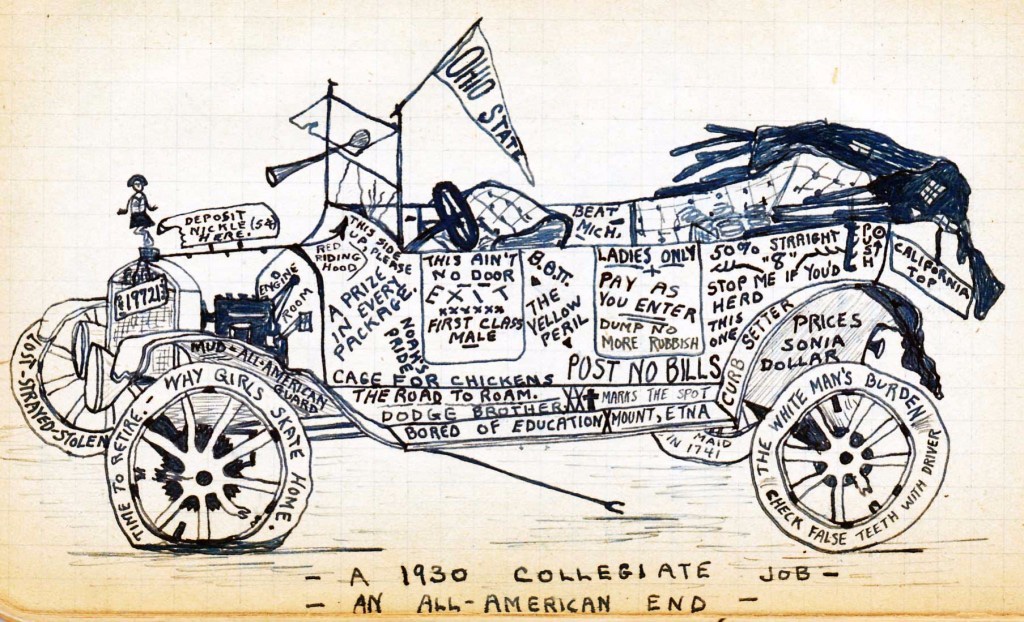 OHIO STATE
DEPOSIT
NICKLE (5¢)
HERE.
19721
ENGINE
ROOM
RED
RIDING
HOOD
THIS SIDE
UP, PLEASE
A PRIZE
IN EVERY
PACKAGE.
NOAK'S
PRIDE
THIS AIN'T
NO DOOR
EXIT
xxxxxx
FIRST CLASS
MALE
THE
YELLOW
PERIL
BEAT
MICH.
LADIES ONLY
PAY AS
YOU ENTER
DUMP NO
MORE RUBBISH
50% STRRIGHT
"8"
STOP ME IF YOU'D
HERD
THIS
ONE
PUSH
CALIFORNIA
TOP
POST NO BILLS
CURB SETTER
PRICES
SONIA
DOLLAR
MUD & ALL-AMERICAN
GUARD
CAGE FOR CHICKENS
THE ROAD TO ROAM.
DODGE BROTHERXX
MARKS THE SPOT
BORED OF EDUCATION
MOUNT, ETNA
MAID
IN 1741
LOST-STRAYED-STOLEN
TIME TO RETIRE.- WHY GIRLS SKATE HOME.
THE WHITE MAN'S BURDEN
CHECK FALSE TEETH WITH DRIVER
- A 1930 COLLEGIATE JOB -
- AN ALL-AMERICAN END -